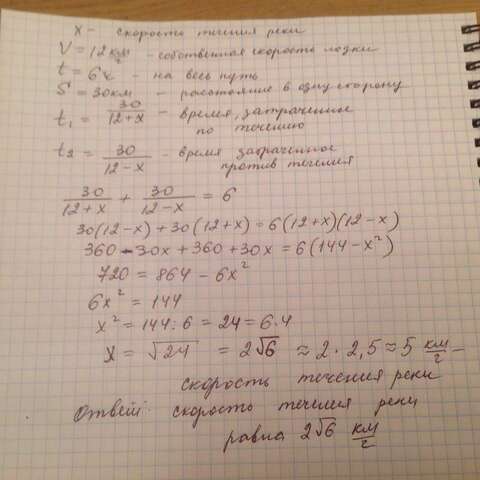 x - скорость течения реки
V = 12 км/ч - собственная скорость лодки
t = 6ч - на весь путь
S = 30км - расстояние в одну сторону
t₁ = 30/(12+x) - время, затраченное по течению
t₂ = 30/(12-x) - время затраченное против течения
30/(12+x) + 30/(12-x) = 6
30(12-x) + 30(12+x) = 6(12+x)(12-x)
360 - 30x + 360 + 30x = 6(144 - x²)
720 = 864 - 6x²
6x² = 144
x² = 144:6 = 24 = 6·4
x = √24 = 2√6 ≈ 2 · 2,5 ≈ 5 км/ч -
скорость течения реки
Ответ: скорость течения реки
равна 2√6 км/ч